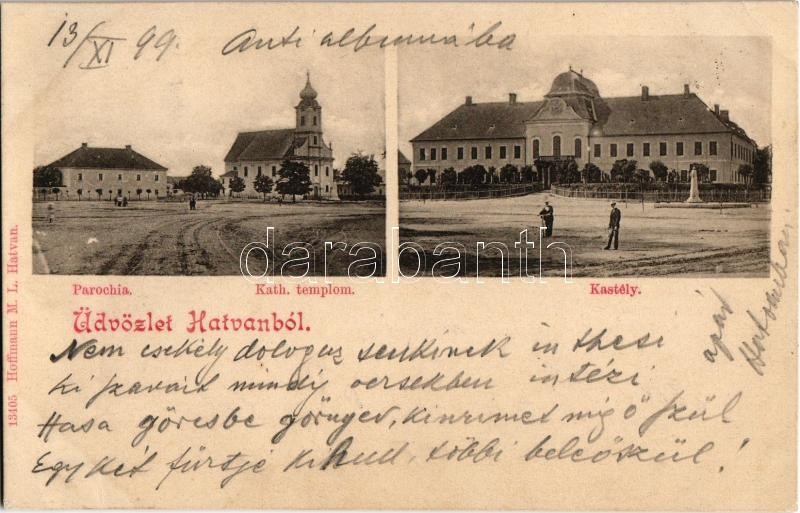 13/XI 99. Anti albumába
darabanth
Parochia.
Kath. templom.
Kastély.
Üdvözlet Hatvanból.
13405 Hoffmann M. L. Hatvan.
Nem csekély dolog az senkinek in thesi
Ki szavait mindig versekben intézi
Hasa görcsbe görnyed, kinrimet míg ő szül
Egy két fürtje kihull, többi beleőszül!
apád